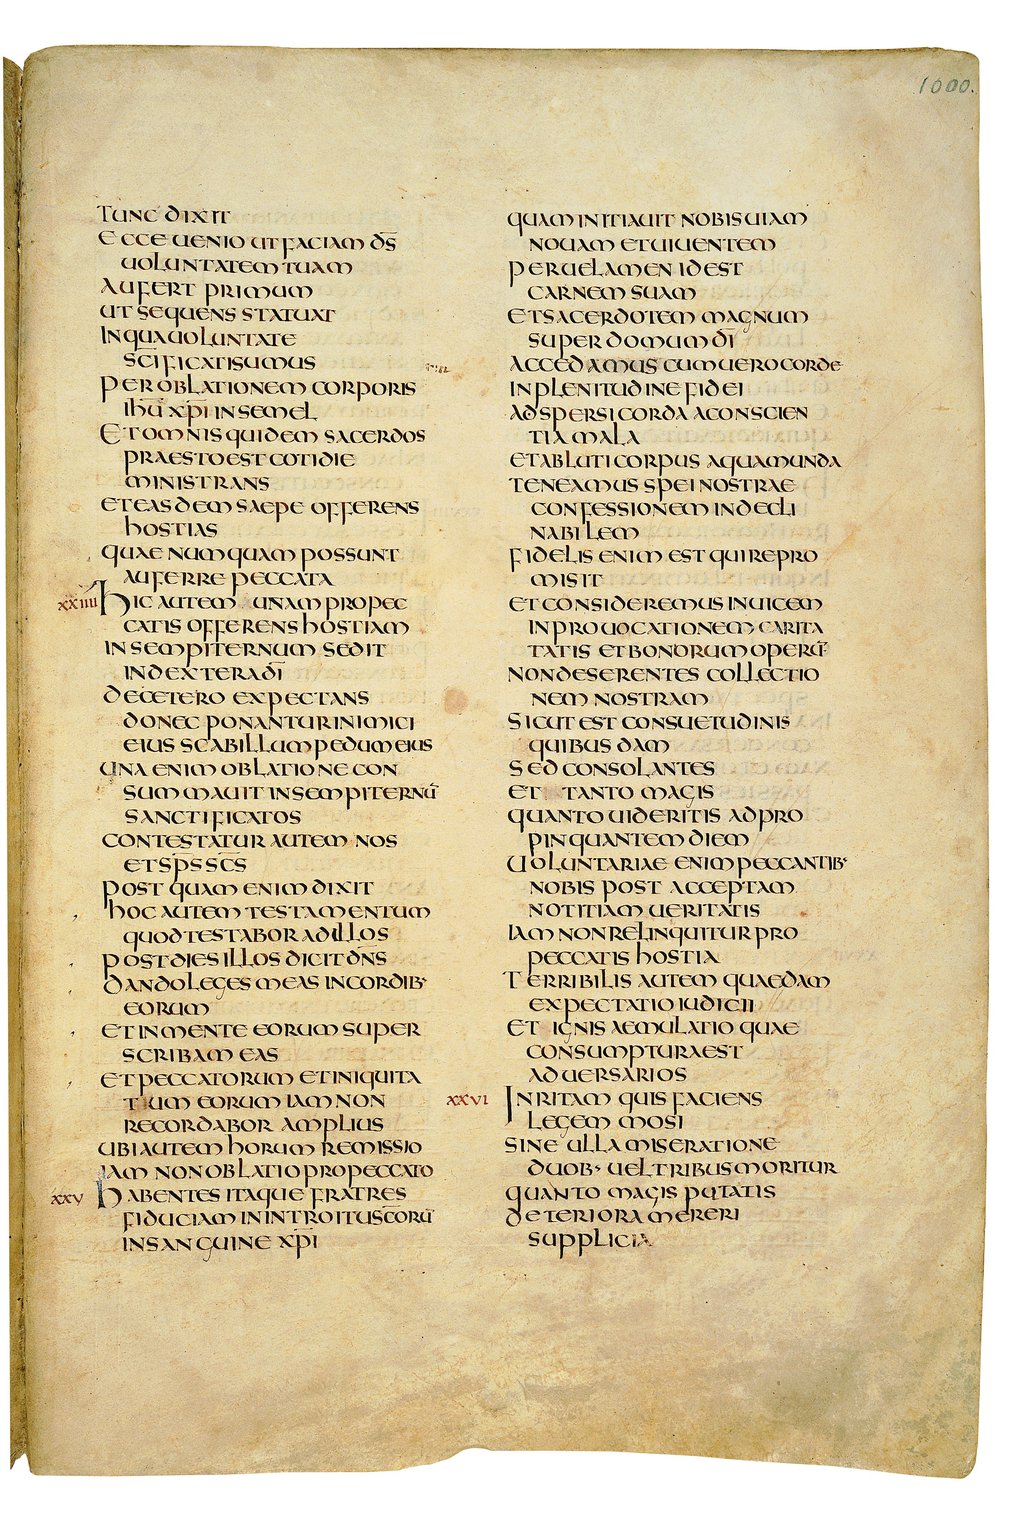 1000.
TUNC DIXIT
ECCE UENIO UT FACIAM D̄S̄
UOLUNTATEM TUAM
AUFERT PRIMUM
UT SEQUENS STATUAT
IN QUA UOLUNTATE
SC̄IFICATI SUMUS
PER OBLATIONEM CORPORIS
IHŪ XP̄I IN SEMEL
ET OMNIS QUIDEM SACERDOS
PRAESTO EST COTIDIE
MINISTRANS
ET EASDEM SAEPE OFFERENS
HOSTIAS
QUAE NUMQUAM POSSUNT
AUFERRE PECCATA
XXIIII HIC AUTEM UNAM PRO PEC
CATIS OFFERENS HOSTIAM
IN SEMPITERNUM SEDIT
IN DEXTERA D̄I
DE CETERO EXPECTANS
DONEC PONANTUR INIMICI
EIUS SCABILLUM PEDUM EIUS
UNA ENIM OBLATIONE CON
SUMMAUIT IN SEMPITERNŪ
SANCTIFICATOS
CONTESTATUR AUTEM NOS
ET SP̄S SC̄S
POST QUAM ENIM DIXIT
HOC AUTEM TESTAMENTUM
QUOD TESTABOR AD ILLOS
POST DIES ILLOS DICIT DN̄S
DANDO LEGES MEAS IN CORDIB·
EORUM
ET IN MENTE EORUM SUPER
SCRIBAM EAS
ET PECCATORUM ET INIQUITA
TIUM EORUM IAM NON
RECORDABOR AMPLIUS
UBI AUTEM HORUM REMISSIO
IAM NON OBLATIO PRO PECCATO
XXV HABENTES ITAQUE FRATRES
FIDUCIAM IN INTROITU SC̄ORŪ
IN SANGUINE XP̄I
QUAM INITIAUIT NOBIS UIAM
NOUAM ET UIUENTEM
PER UELAMEN ID EST
CARNEM SUAM
ET SACERDOTEM MAGNUM
SUPER DOMUM D̄I
ACCEDAMUS CUM UERO CORDE
IN PLENITUDINE FIDEI
ADSPERSI CORDA A CONSCIEN
TIA MALA
ET ABLUTI CORPUS AQUA MUNDA
TENEAMUS SPEI NOSTRAE
CONFESSIONEM INDECLI
NABILEM
FIDELIS ENIM EST QUI REPRO
MISIT
ET CONSIDEREMUS INUICEM
IN PROUOCATIONEM CARITA
TATIS ET BONORUM OPERŪ
NON DESERENTES COLLECTIO
NEM NOSTRAM
SICUT EST CONSUETUDINIS
QUIBUSDAM
SED CONSOLANTES
ET TANTO MAGIS
QUANTO UIDERITIS ADPRO
PINQUANTEM DIEM
UOLUNTARIAE ENIM PECCANTIB·
NOBIS POST ACCEPTAM
NOTITIAM UERITATIS
IAM NON RELINQUITUR PRO
PECCATIS HOSTIA
TERRIBILIS AUTEM QUAEDAM
EXPECTATIO IUDICII
ET IGNIS AEMULATIO QUAE
CONSUMPTURA EST
ADUERSARIOS
XXVI INRITAM QUIS FACIENS
LEGEM MOSI
SINE ULLA MISERATIONE
DUOB· UEL TRIBUS MORITUR
QUANTO MAGIS PUTATIS
DETERIORA MERERI
SUPPLICIA